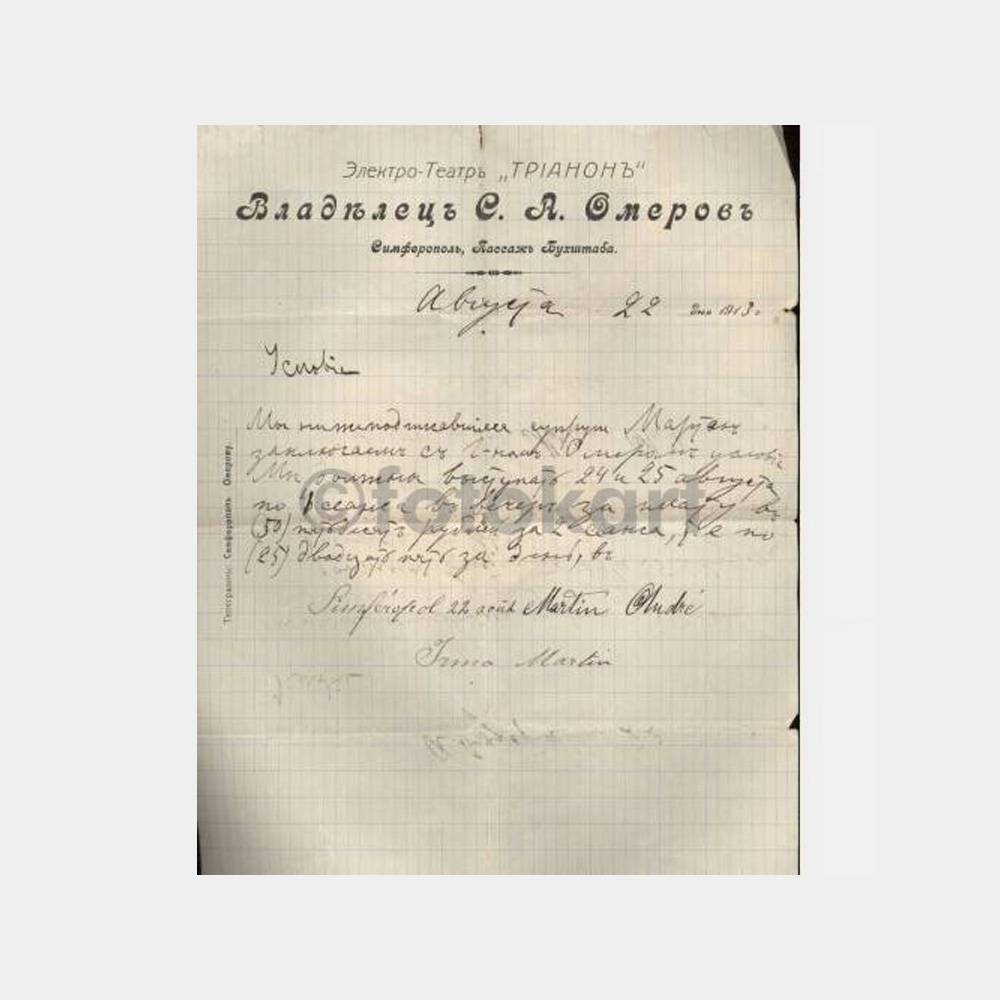 Электро-Театръ „ТРІАНОНЪ“
Владѣлецъ С. А. Омеровъ
Симферополь, Пассажъ Бухштаба.
Августа 22 дня 1913 г
Условіе
Мы нижеподписавшіеся супруги Мартэнъ
заключаемъ съ Г-номъ Омеромъ условіе
Мы должны выступать 24 и 25 августа
по 1 сеансу въ вечеръ за плату въ
(50) пятьдесятъ рублей за 2 сеанса, т.е по
(25) двадцать пять за день, въ
Simféropol 22 août Martin André
Irma Martin
Телеграммы: Симферополь Омерову.
©fotokart